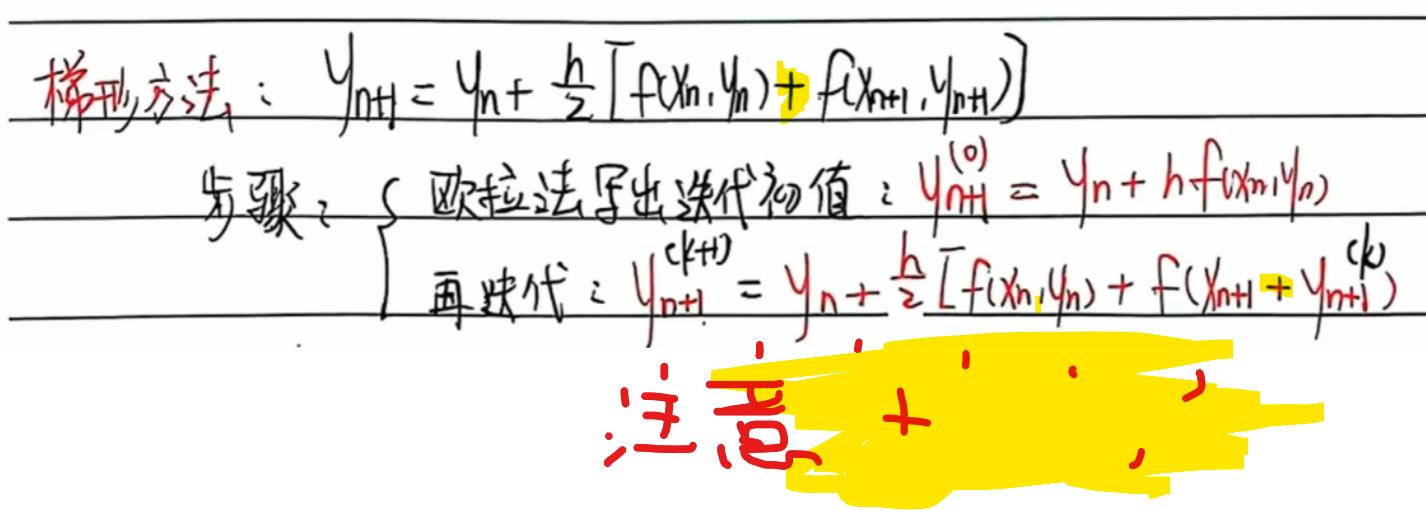 梯形方法： yₙ₊₁ = yₙ + h/2 [f(xₙ, yₙ) + f(xₙ₊₁, yₙ₊₁)]
步骤： { 欧拉法写出迭代初值： yₙ₊₁⁽⁰⁾ = yₙ + h·f(xₙ, yₙ)
再迭代： yₙ₊₁⁽ᵏ⁺¹⁾ = yₙ + h/2 [f(xₙ, yₙ) + f(xₙ₊₁ + yₙ₊₁⁽ᵏ⁾)
注意 + ' , ,